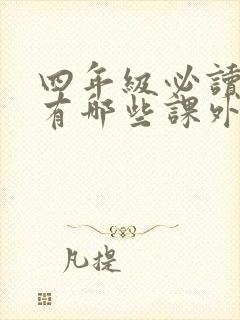 四年级必讀
有哪些課外
凡提